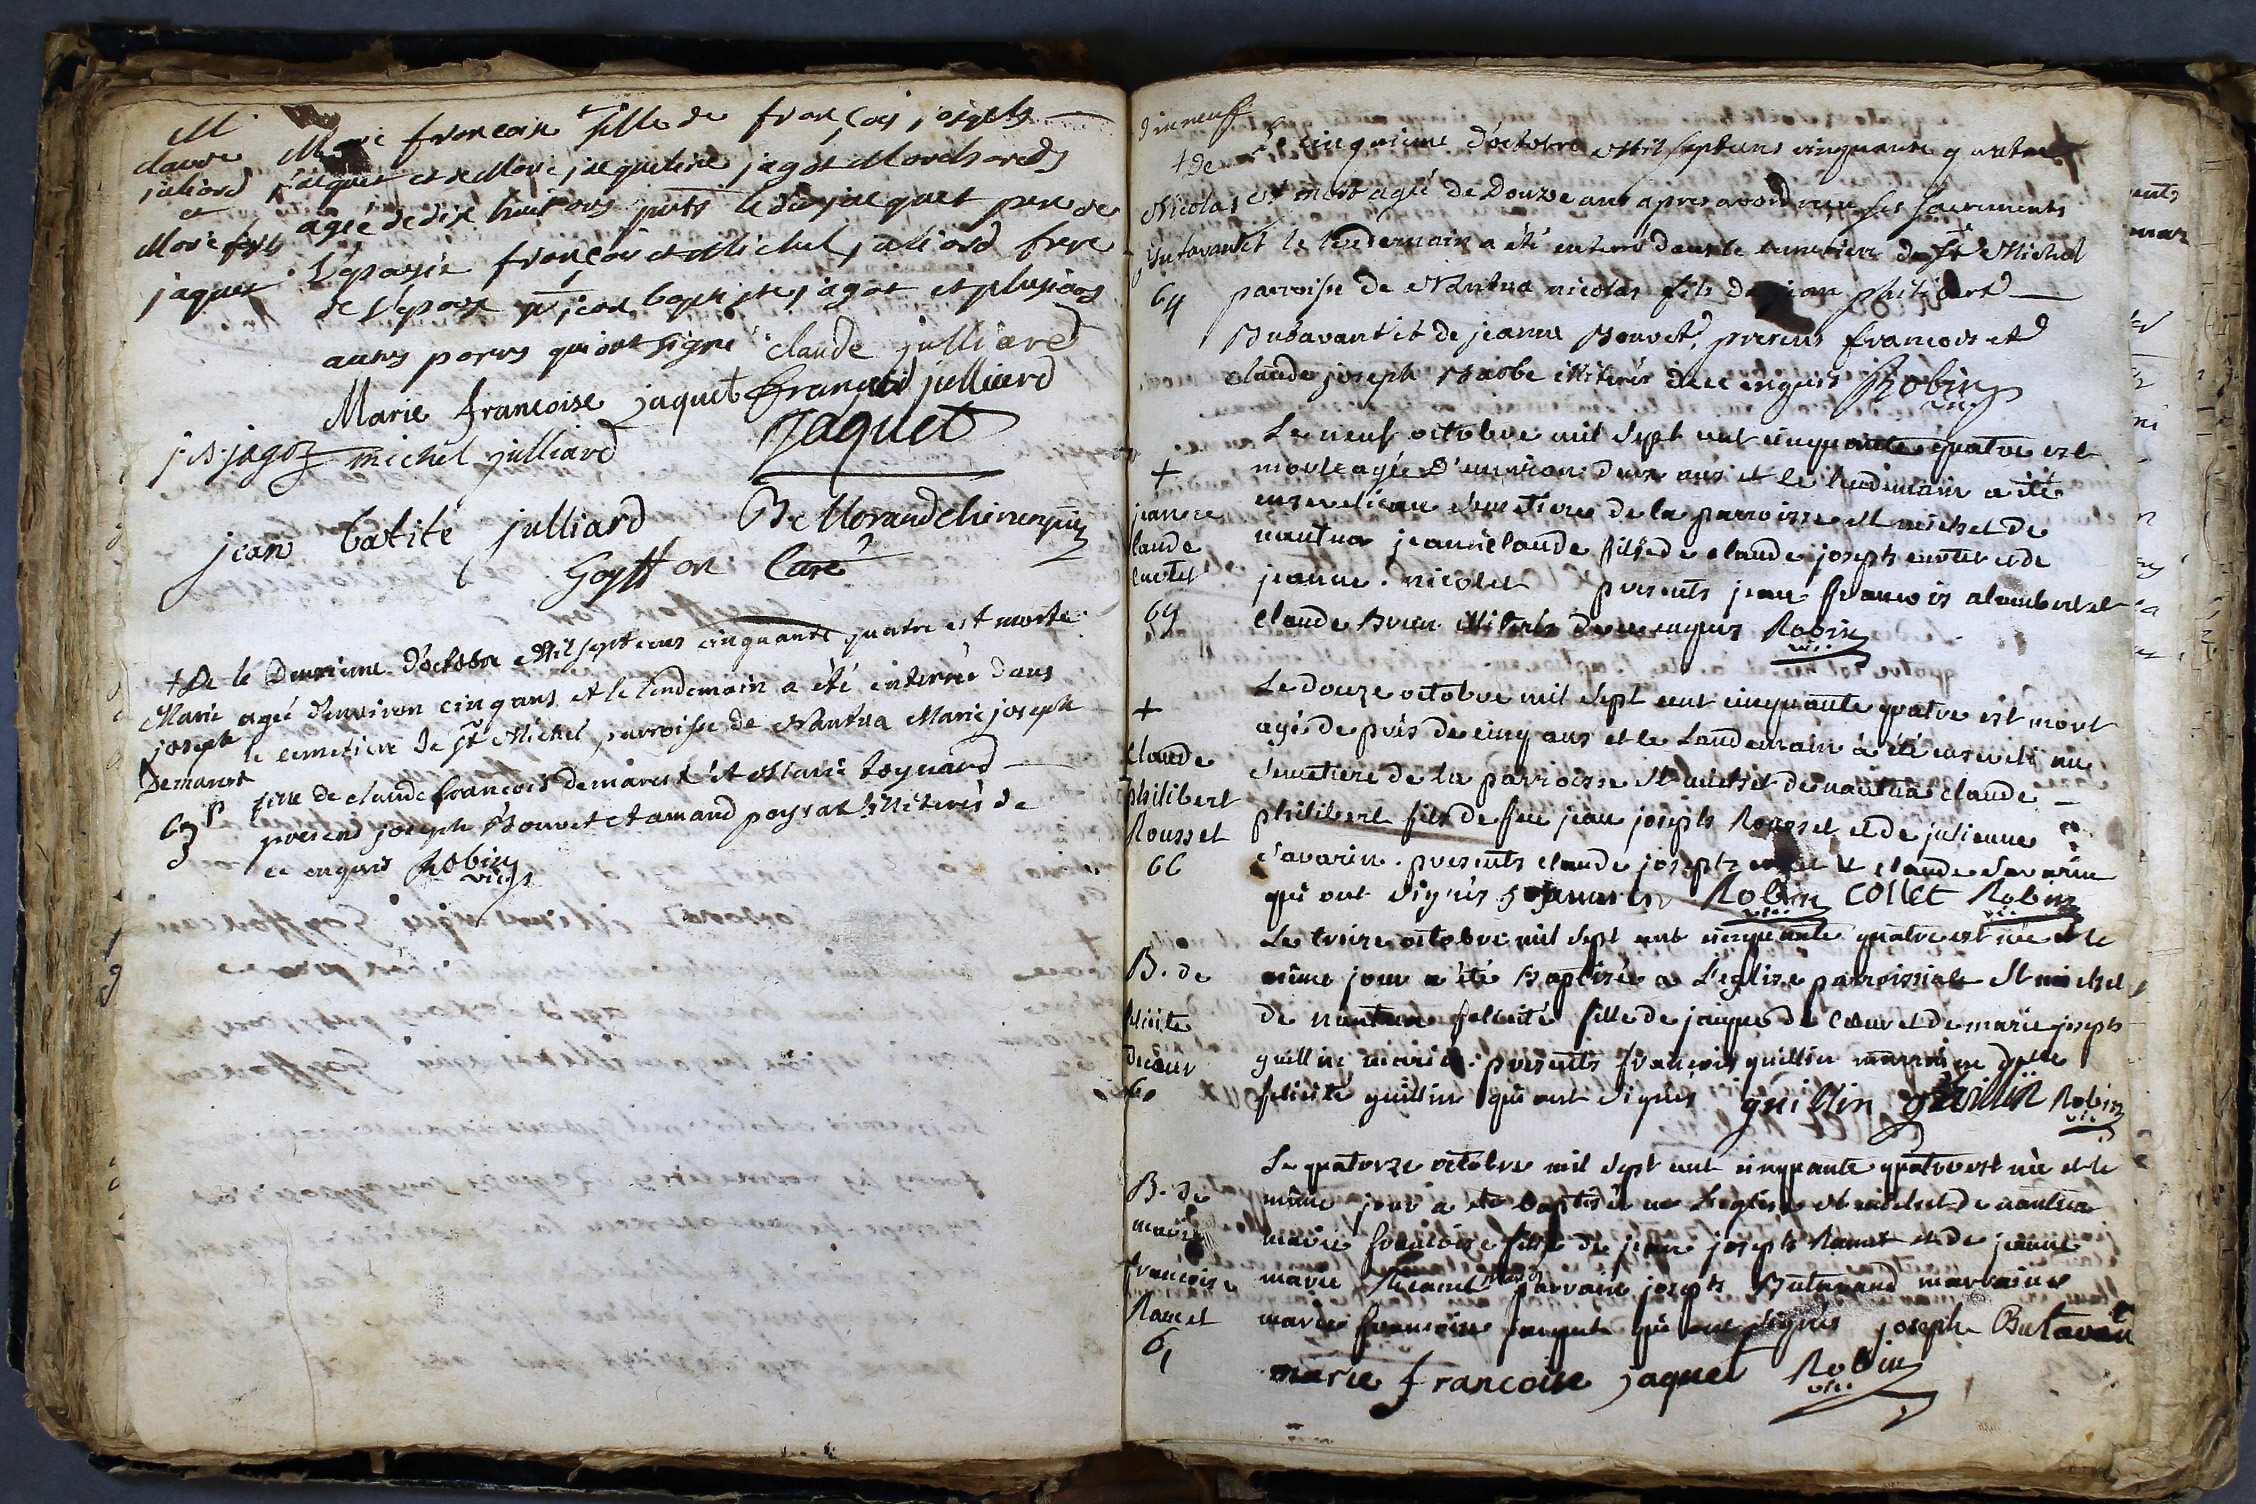 M
claude
juliard
et
Marie frse
jaquet
Marie francoise fille de françois joseph
jaquet et de Marie jaqueline jagot Marchands
agée de dix huit ans prnts le dit jacquet pere de
L'epouse françois et Michel juliard frere
de l'epoux jean baptiste jagot et plusieurs
autres parens qui ont signé claude julliard
Marie francoise jaquet françois julliard
j·b·jagoz michel julliard Jaquet
jean batite julliard
Goyffon Curé
+ De
Marie
joseph
Demarest
63
le deuxieme d'octobre Mil sept cens cinquante quatre est morte
agée d'environ cinq ans et le lendemain a été enterrée dans
le cemetiere de st Michel parroisse de Nantua Marie joseph
fille de claude francois demarest et Marie toynard
presens joseph Bouvet et amand peysat illiterés de
ce enquis Robin vic
dixneuf
+ de
Nicolas
Butavant
64
Le cinquieme d'octobre Mil sept cens cinquante quatre
est mort agé de Douze ans apres avoir reçu ses sacrements
et le lendemain a été enterré dans le cemetiere de st Michel
parroisse de Nantua nicolas fils de jean philibert
Butavant et de jeanne Bouvet, presens francois et
claude joseph Barbe illiterés de ce enquis Robin vic
+
jeanne
claude
cuvtet
65
Le neuf octobre mil sept cent cinquante quatre est
morte agée d'environ deux ans et le lendemain a été
ensevelie au semetiere de la parroisse st michel de
nantua jeanne claude fille de claude joseph et de
jeanne nicolet presents jean francois alombert et
claude Brun illiterés de ce enquis Robin vic
+
claude
philibert
Rousset
66
Le douze octobre mil sept cent cinquante quatre est mort
agé de prés de cinq ans et le landemain a été enseveli au
semetiere de la parroisse st michel de nantua claude
philibert fils de feu jean joseph Rousset et de julienne
savarin. presents claude joseph et claude savarin
qui ont signés Robin vic collet Robin vic
B. de
felicite
decœur
60
Le treize octobre mil sept cent cinquante quatre est née et le
même jour a été Baptisée a L'eglise parroissiale st michel
de nantua felicité fille de jacque de Cœur et de marie joseph
guillin mariés. presents francois guillin marraine dlle
felicité guillin qui ont signés guillin guillin Robin vic
B. de
marie
francoise
Ramet
61
Le quatorze octobre mil sept cent cinquante quatre est née et le
même jour a été baptisée en L'eglise st michel de nantua
marie francoise fille de jean joseph Ramet et de jeanne
marie mariés parrain joseph Butavand marraine
marie francoise jaquet qui ont signés joseph Butavant
marie francoise jaquet Robin vic